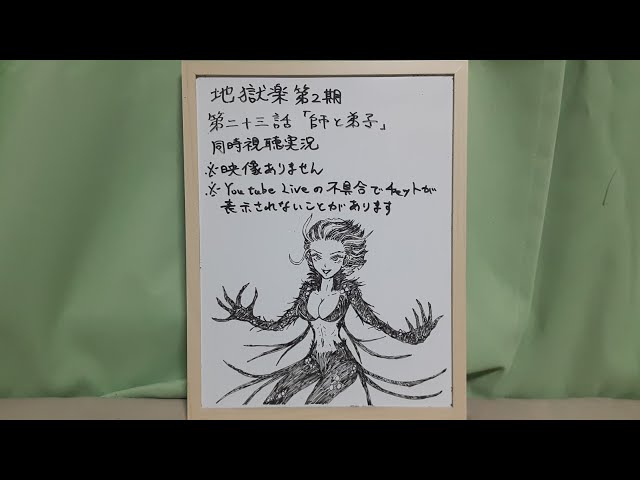 地獄楽第2期
第二十三話「師と弟子」
同時視聴実況
※映像ありません
※YouTube Liveの不具合でチャットが
表示されないことがあります